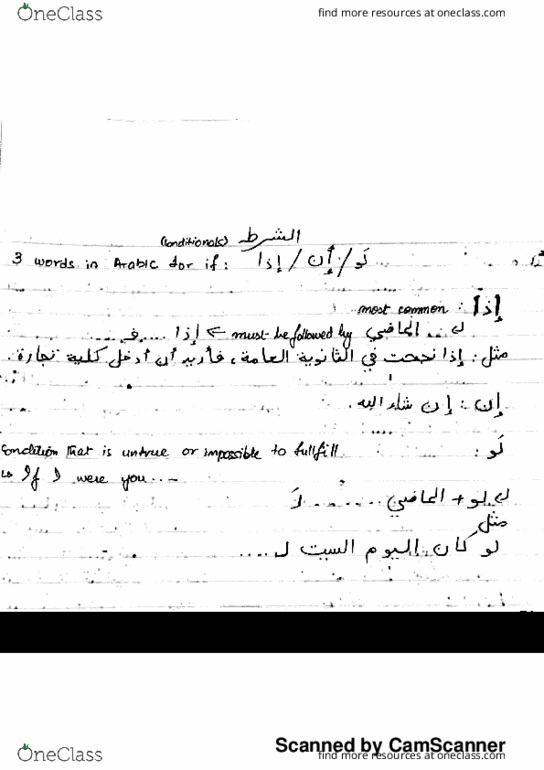 OneClass
find more resources at oneclass.com
الشرط (conditionals)
3 words in Arabic for if : لَو / إن / إذا
إذا : most common
الماضي must be followed by ← إذا ..... فـ ....
مثل : إذا نجحت في الثانوية العامة ، فأريد أن أدخل كلية تجارة.
إن : إن شاء الله .
لَو : condition that is untrue or impossible to fullfill
If I were you ...
لو + الماضي ....... لَـ
مثل
لو كان اليوم السبت لـ ....
Scanned by CamScanner
OneClass
find more resources at oneclass.com